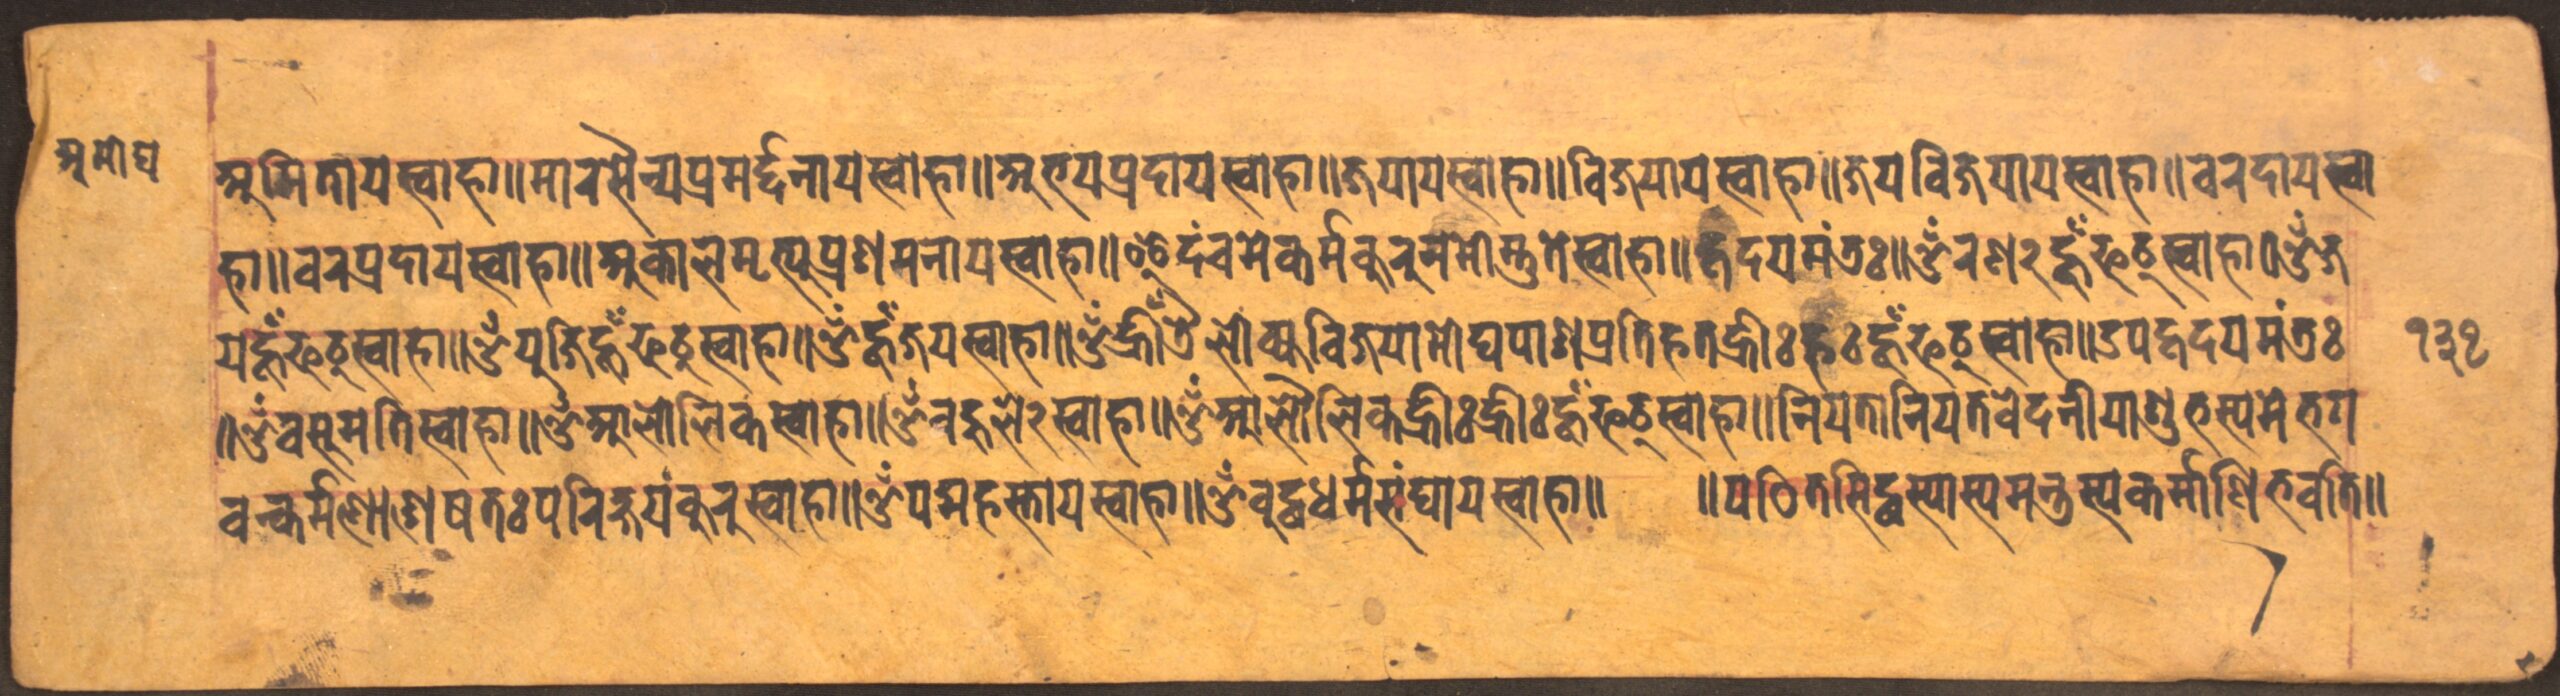 अमोघ
अमिताय स्वाहा॥ मारसैन्यप्रमर्द्दनाय स्वाहा॥ अभयप्रदाय स्वाहा॥ जयाय स्वाहा॥ विजयाय स्वाहा॥ जयविजयाय स्वाहा॥ वरदाय स्वा
हा॥ वरप्रदाय स्वाहा॥ अकालमृत्युप्रशमनाय स्वाहा॥ इदं च मे कर्म कुरु नमोस्तु ते स्वाहा॥ हृदयमंत्रः॥ ॐ रण २ हूँ फट् स्वाहा॥ ॐ ज
ये हूँ फट् स्वाहा॥ ॐ युजि हूँ फट् स्वाहा॥ ॐ हूँ जय स्वाहा॥ ॐ ह्रीँ त्रैलोक्यविजयामोघपाशप्रतिहत ह्रीः हः हूँ फट् स्वाहा॥ उपहृदयमंत्रः
॥ ॐ वसुमति स्वाहा॥ ॐ आलोलिक स्वाहा॥ ॐ बहुले २ स्वाहा॥ ॐ आलौलिक ह्रीः ह्रीः हूँ फट् स्वाहा॥ नियतानियतवेदनीयाशुभस्य मे भग
वन् कर्मणाशेषतः परिक्षयं कुरु स्वाहा॥ ॐ पद्महस्ताय स्वाहा॥ ॐ बुद्धधर्मसंघाय स्वाहा॥ ॥ पठितसिद्धस्यास्य मन्त्रस्य कर्माणि भवति॥